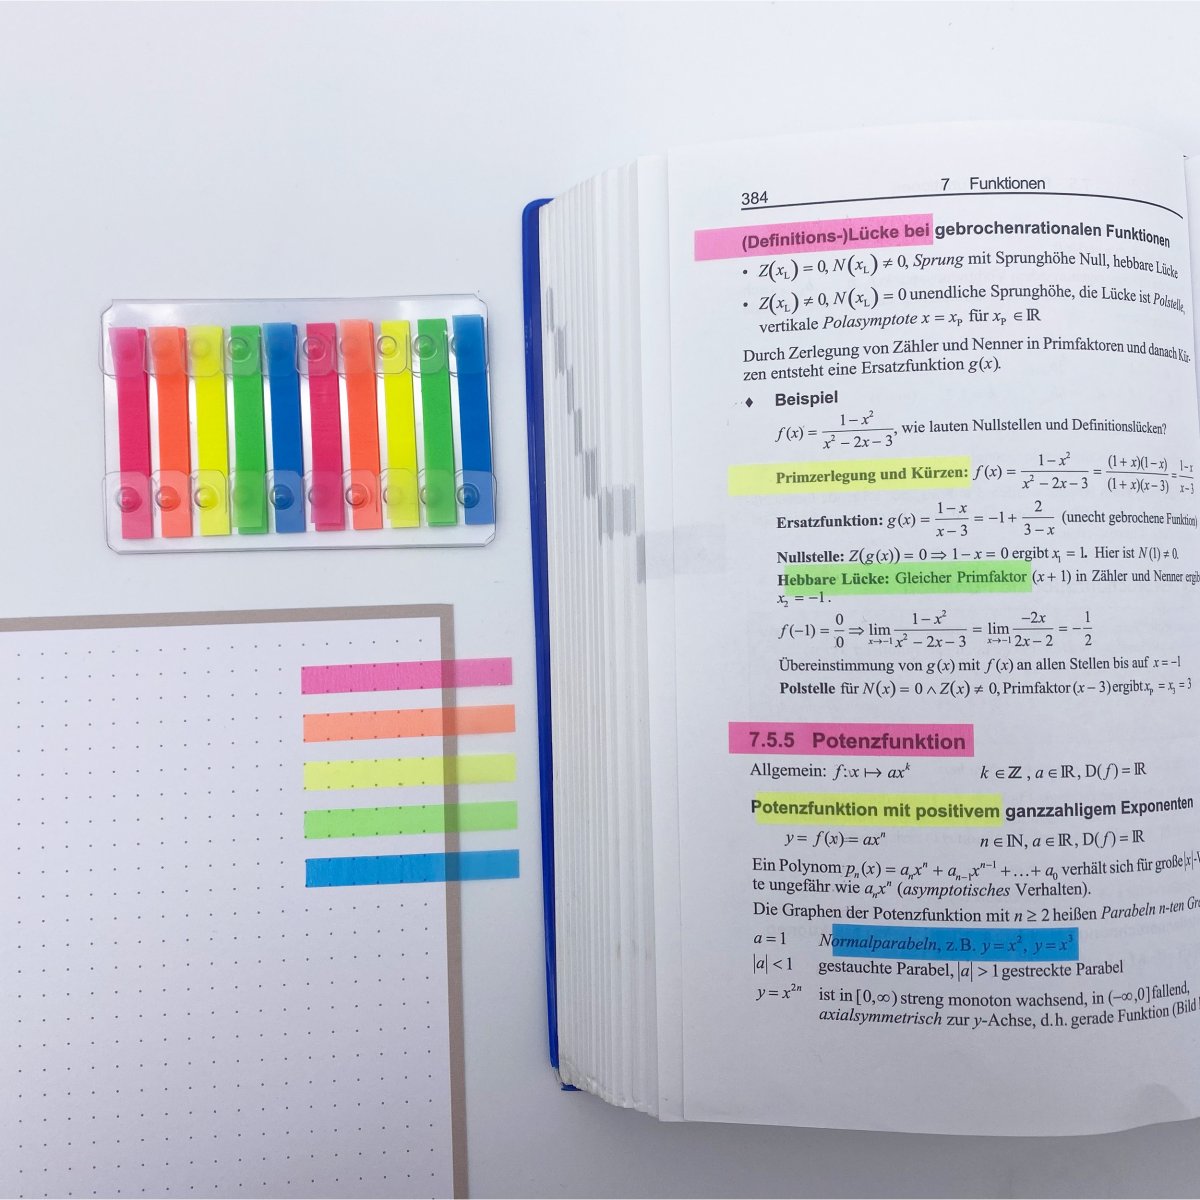 384
7 Funktionen
(Definitions-)Lücke bei gebrochenrationalen Funktionen
• Z(x_L) = 0, N(x_L) ≠ 0, Sprung mit Sprunghöhe Null, hebbare Lücke
• Z(x_L) ≠ 0, N(x_L) = 0 unendliche Sprunghöhe, die Lücke ist Polstelle,
vertikale Polasymptote x = x_P für x_P ∈ ℝ
Durch Zerlegung von Zähler und Nenner in Primfaktoren und danach Kür-
zen entsteht eine Ersatzfunktion g(x).
♦ Beispiel
f(x) = (1 − x²)/(x² − 2x − 3), wie lauten Nullstellen und Definitionslücken?
Primzerlegung und Kürzen: f(x) = (1 − x²)/(x² − 2x − 3) = ((1 + x)(1 − x))/((1 + x)(x − 3)) = (1 − x)/(x − 3)
Ersatzfunktion: g(x) = (1 − x)/(x − 3) = −1 + 2/(3 − x) (unecht gebrochene Funktion)
Nullstelle: Z(g(x)) = 0 ⇒ 1 − x = 0 ergibt x₁ = 1. Hier ist N(1) ≠ 0.
Hebbare Lücke: Gleicher Primfaktor (x + 1) in Zähler und Nenner
x₂ = −1.
f(−1) = 0/0 ⇒ lim x→−1 (1 − x²)/(x² − 2x − 3) = lim x→−1 (−2x)/(2x − 2) = −1/2
Übereinstimmung von g(x) mit f(x) an allen Stellen bis auf x = −1
Polstelle für N(x) = 0 ∧ Z(x) ≠ 0, Primfaktor (x − 3) ergibt x_P = x₃ = 3
7.5.5 Potenzfunktion
Allgemein: f: x ↦ ax^k k ∈ ℤ, a ∈ ℝ, D(f) = ℝ
Potenzfunktion mit positivem ganzzahligem Exponenten
y = f(x) = ax^n n ∈ ℕ, a ∈ ℝ, D(f) = ℝ
Ein Polynom p_n(x) = a_n x^n + a_{n−1} x^{n−1} + … + a_0 verhält sich für große |x|-
te ungefähr wie a_n x^n (asymptotisches Verhalten).
Die Graphen der Potenzfunktion mit n ≥ 2 heißen Parabeln n-ten
a = 1 Normalparabeln, z. B. y = x², y = x³
|a| < 1 gestauchte Parabel, |a| > 1 gestreckte Parabel
y = x^{2n} ist in [0,∞) streng monoton wachsend, in (−∞,0] fallend,
axialsymmetrisch zur y-Achse, d. h. gerade Funktion (Bild